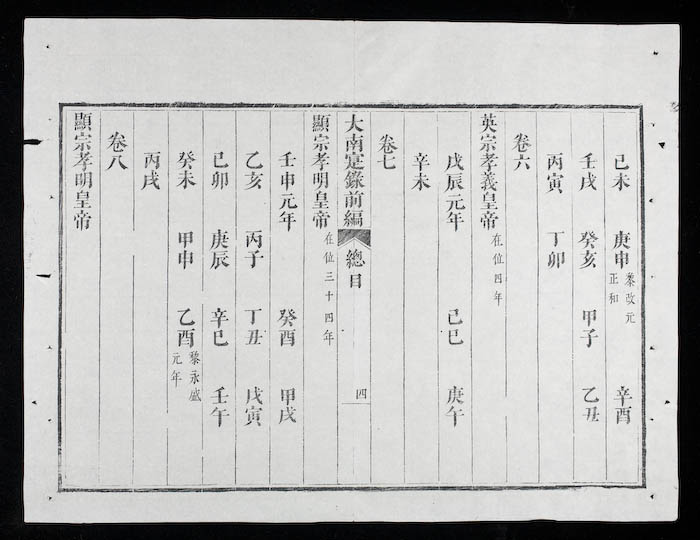 己未 庚申 黎改元正和 辛酉
壬戌 癸亥 甲子 乙丑
丙寅 丁卯
卷六
英宗孝義皇帝 在位四年
戊辰元年 己巳 庚午
辛未
卷七
大南寔錄前編 總目 四
顯宗孝明皇帝 在位三十四年
壬申元年 癸酉 甲戌
乙亥 丙子 丁丑 戊寅
己卯 庚辰 辛巳 壬午
癸未 甲申 乙酉 黎永盛元年
丙戌
卷八
顯宗孝明皇帝